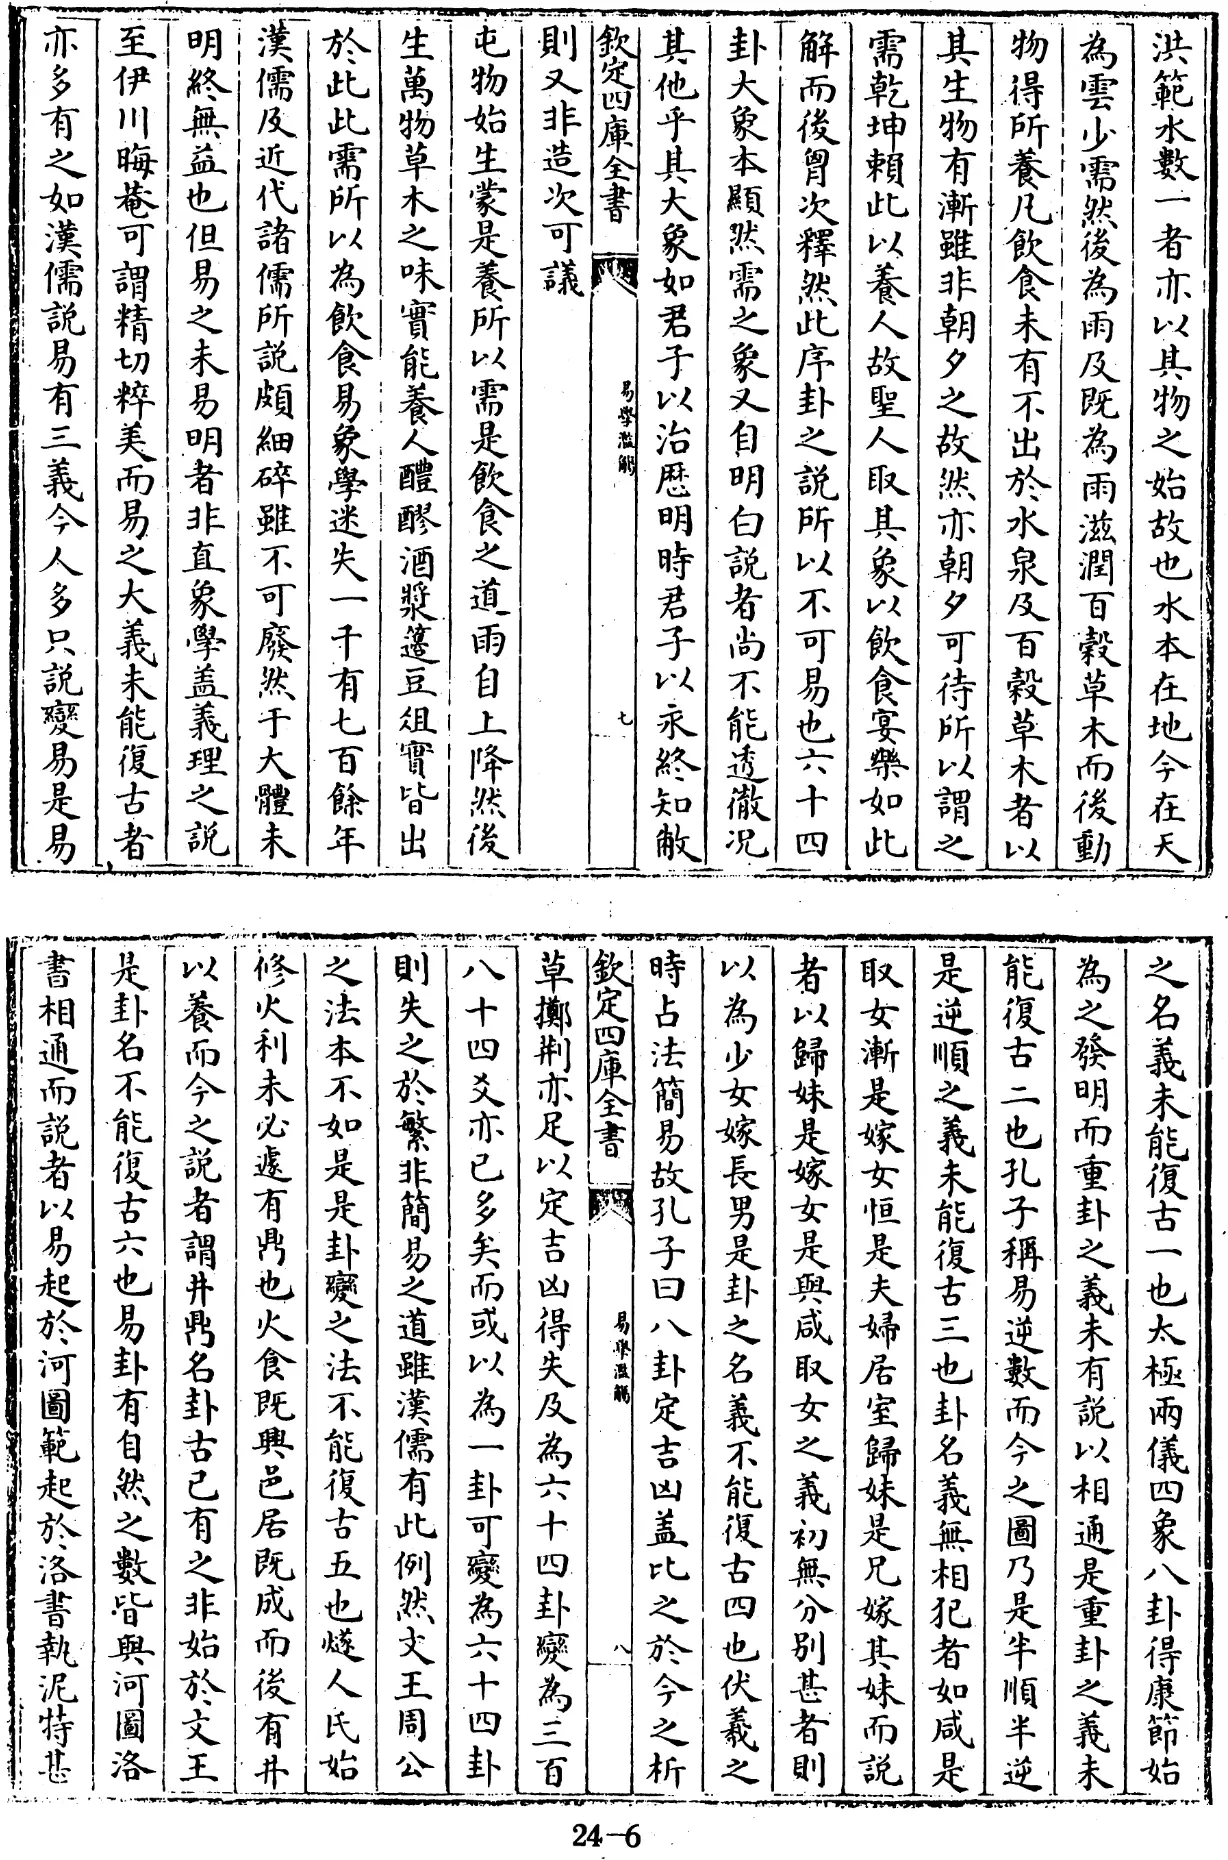 洪範水數一者亦以其物之始故也水本在地今在天
為雲少需然後為雨及既為雨滋潤百穀草木而後動
物得所養凡飲食未有不出於水泉及百穀草木者以
其生物有漸雖非朝夕之故然亦朝夕可待所以謂之
需乾坤賴此以養人故聖人取其象以飲食宴樂如此
解而後胷次釋然此序卦之說所以不可易也六十四
卦大象本顯然需之象又自明白說者尚不能透徹況
其他乎其大象如君子以治歷明時君子以永終知敝
欽定四庫全書
易學濫觴
七
則又非造次可議
屯物始生蒙是養所以需是飲食之道雨自上降然後
生萬物草木之味實能養人醴醪酒漿籩豆俎實皆出
於此此需所以為飲食易象學迷失一千有七百餘年
漢儒及近代諸儒所說頗細碎雖不可廢然于大體未
明終無益也但易之未易明者非直象學盖義理之說
至伊川晦菴可謂精切粹美而易之大義未能復古者
亦多有之如漢儒說易有三義今人多只說變易是易
之名義未能復古一也太極兩儀四象八卦得康節始
為之發明而重卦之義未有說以相通是重卦之義未
能復古二也孔子稱易逆數而今之圖乃是半順半逆
是逆順之義未能復古三也卦名義無相犯者如咸是
取女漸是嫁女恒是夫婦居室歸妹是兄嫁其妹而說
者以歸妹是嫁女是與咸取女之義初無分別甚者則
以為少女嫁長男是卦之名義不能復古四也伏羲之
時占法簡易故孔子曰八卦定吉凶盖比之於今之析
欽定四庫全書
易學濫觴
八
草擲荆亦足以定吉凶得失及為六十四卦變為三百
八十四爻亦已多矣而或以為一卦可變為六十四卦
則失之於繁非簡易之道雖漢儒有此例然文王周公
之法本不如是是卦變之法不能復古五也燧人氏始
修火利未必遽有鼎也火食既興邑居既成而後有井
以養而今之說者謂井鼎名卦古已有之非始於文王
是卦名不能復古六也易卦有自然之數皆與河圖洛
書相通而說者以易起於河圖範起於洛書執泥特甚
24-6